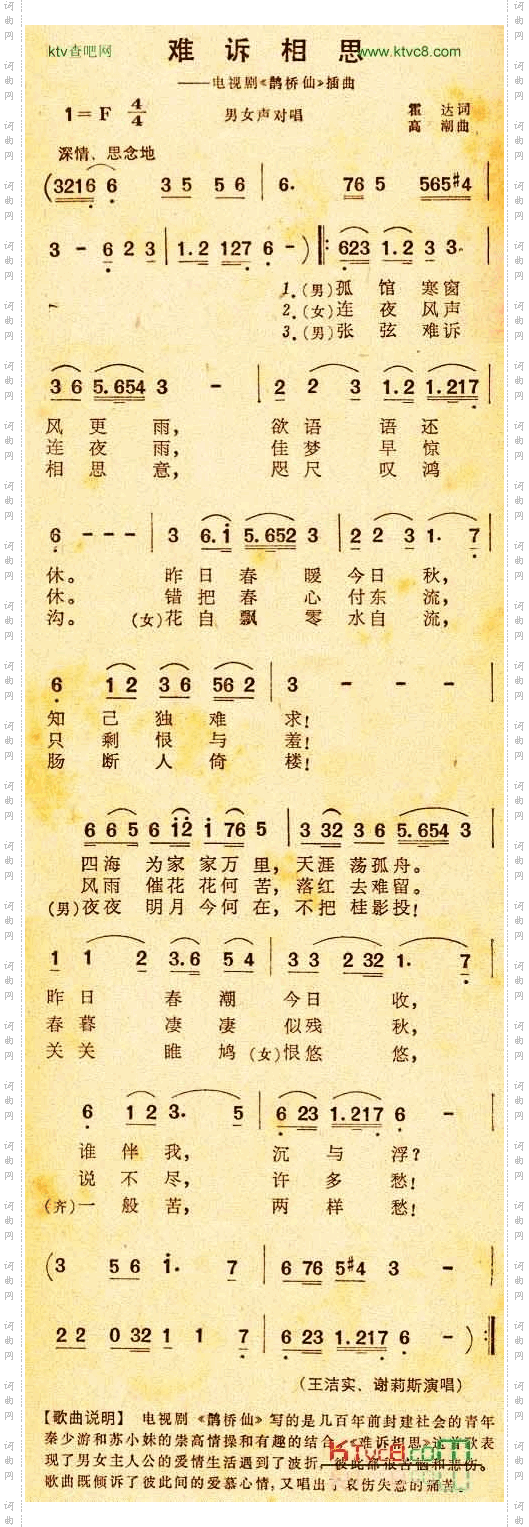 ktv查吧网
难诉相思
www.ktvc8.com
——电视剧《鹊桥仙》插曲
1=F 4/4
男女声对唱
霍 达词
高 潮曲
深情、思念地
(3216 6 3 5 5 6 | 6. 76 5 565#4 |
3 - 6 2 3 | 1.2 127 6 -) |: 623 1.2 3 3· |
1.(男)孤 馆 寒窗
2.(女)连 夜 风声
3.(男)张 弦 难诉
3 6 5.654 3 - | 2 2 3 1.2 1.217 |
风更雨, 欲语语还
连夜雨, 佳梦早惊
相思意, 咫尺叹鸿
6 - - - | 3 6.i 5.652 3 | 2 2 3 1. 7 |
休。 昨日春暖今日秋,
休。 错把春心付东流,
沟。 (女)花自飘零水自流,
6 1 2 3 6 56 2 | 3 - - - |
知己独难求!
只剩恨与羞!
肠断人倚楼!
6 6 5 6 i2 i 76 5 | 3 32 3 6 5.654 3 |
四海为家家万里, 天涯荡孤舟。
风雨催花花何苦, 落红去难留。
(男)夜夜明月今何在, 不把桂影投!
1 1 2 3.6 5 4 | 3 3 2 32 1. 7 |
昨日春潮今日收,
春暮凄凄似残秋,
关关雎鸠(女)恨悠悠,
6 1 2 3. 5 | 6 23 1.217 6 - |
谁伴我, 沉与浮?
说不尽, 许多愁!
(齐)一般苦, 两样愁!
(3 5 6 i. 7 | 6 76 5#4 3 - |
2 2 0 32 1 1 7 | 6 23 1.217 6 -) :|
(王洁实、谢莉斯演唱)
【歌曲说明】 电视剧《鹊桥仙》写的是几百年前封建社会的青年
秦少游和苏小妹的崇高情操和有趣的结合。《难诉相思》这首歌表
现了男女主人公的爱情生活遇到了波折, 彼此都很苦恼和悲伤。
歌曲既倾诉了彼此间的爱慕心情, 又唱出了哀伤失恋的痛苦。
KTvc8.com
词曲网